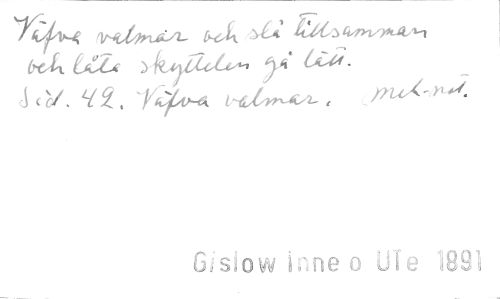 Väfva valmar och slå tillsamman
och låta skyttelen gå lätt.
Sid. 42. Väfva valmar.
Gislow Inne o Ute 1891